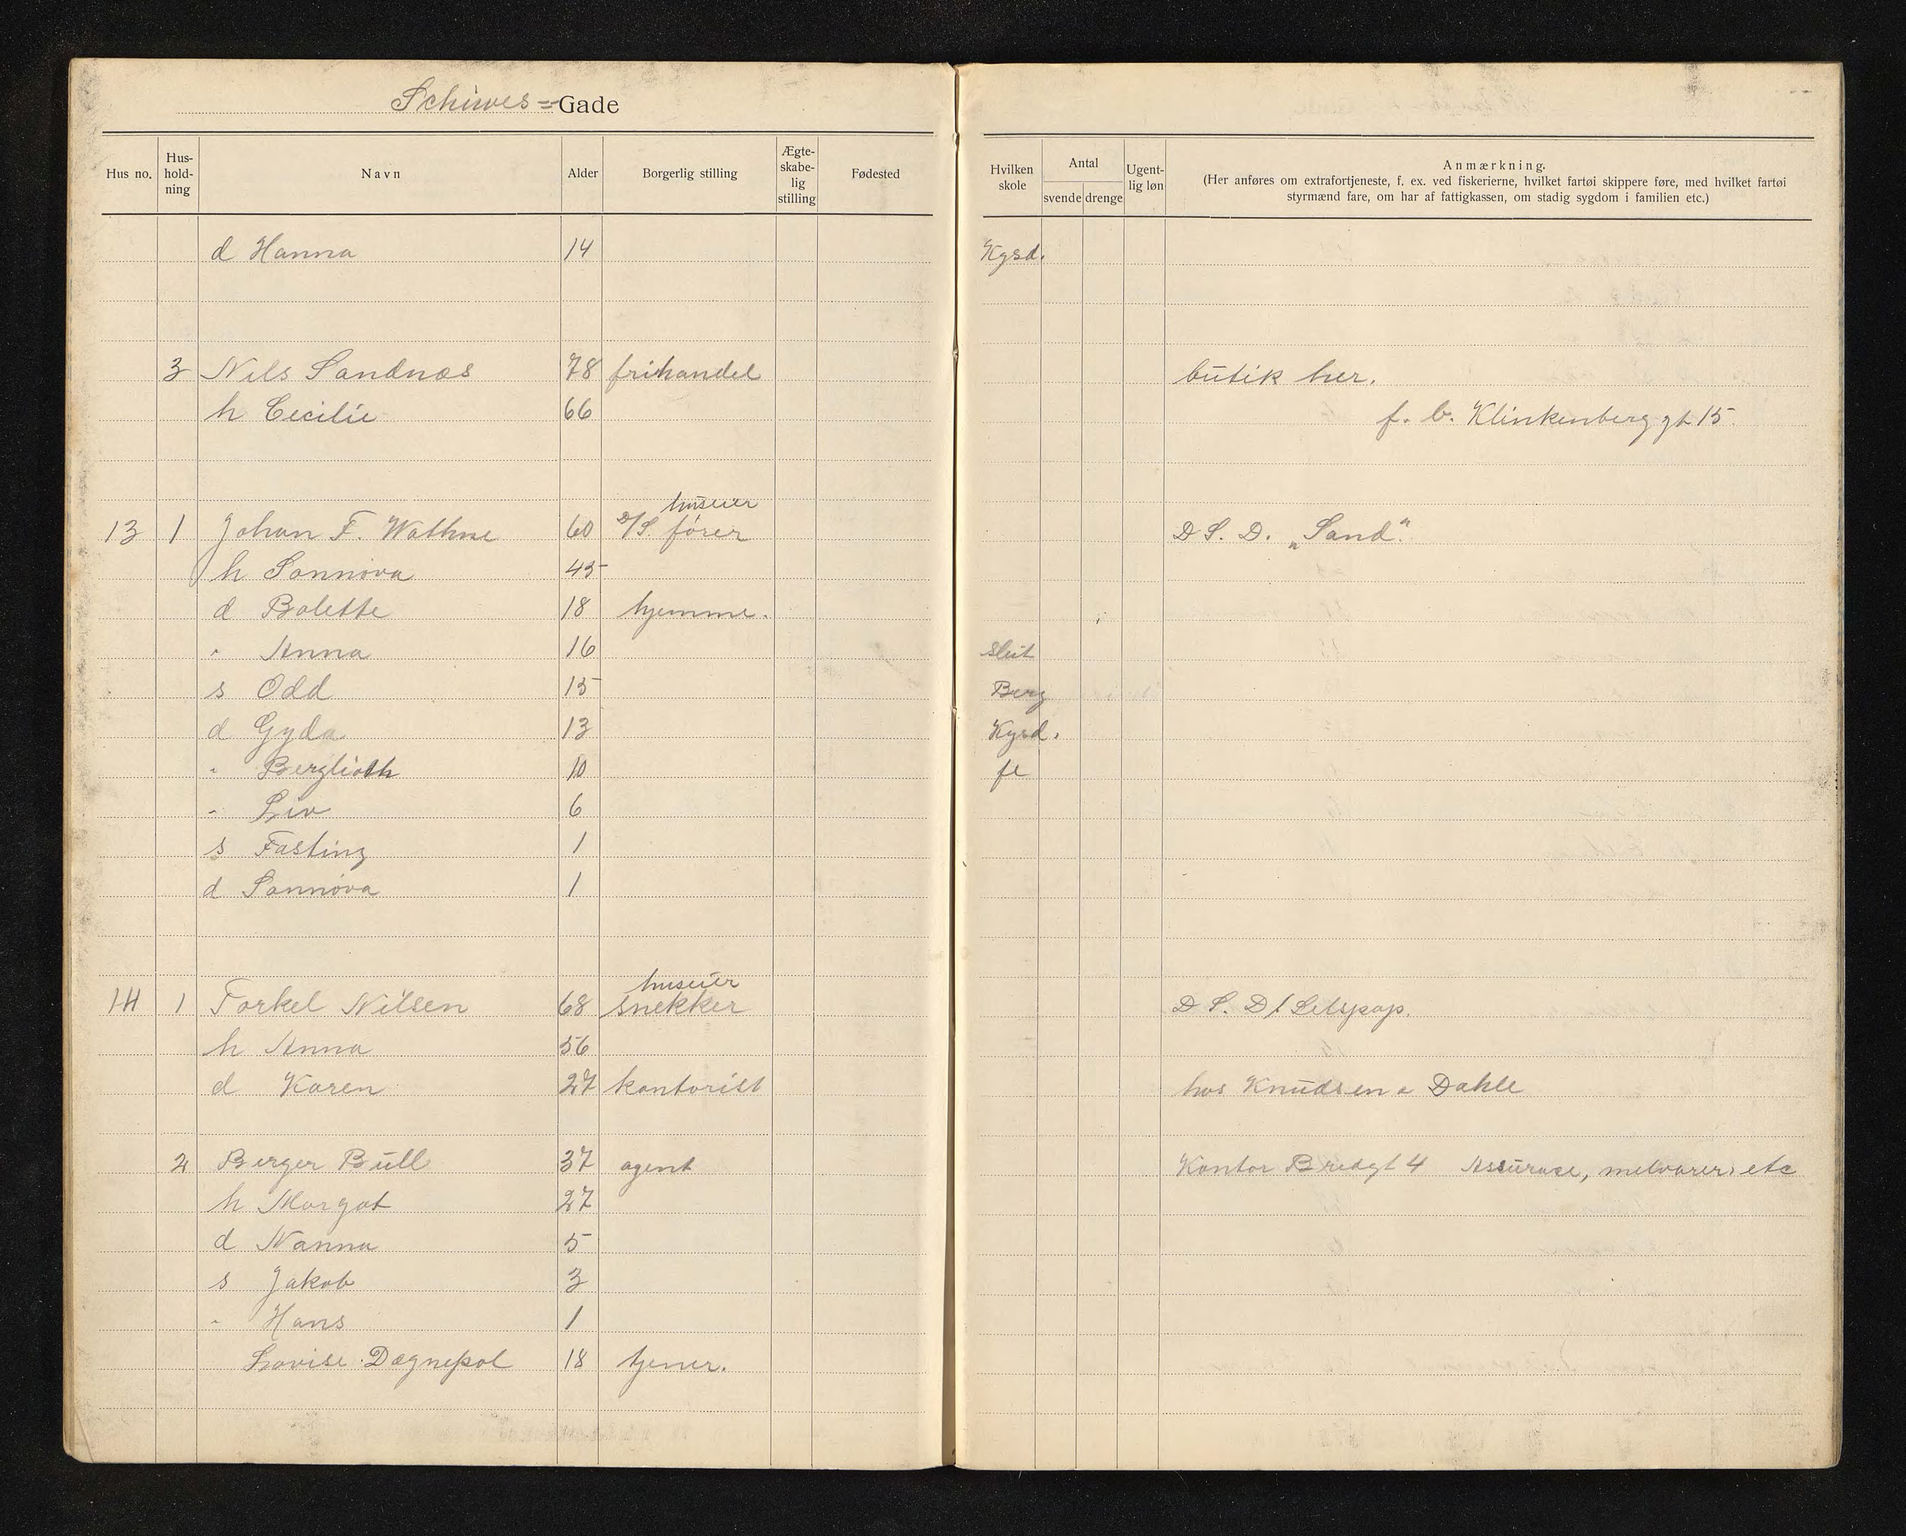 Schiwes=Gade
Hus no. Hus-hold-ning Navn Alder Borgerlig stilling Ægte-skabe-lig stilling Fødested Hvilken skole Antal svende drenge Ugent-lig løn Anmærkning.
(Her anføres om extrafortjeneste, f. ex. ved fiskerierne, hvilket fartøi skippere føre, med hvilket fartøi
styrmænd fare, om har af fattigkassen, om stadig sygdom i familien etc.)
d Hanna 14 Kgsd.
3 Nils Sandnæs 78 frihandel butik her.
h Cecilie 66 f. b. Klinkenberg gt 15.
huseier
13 1 Johan F. Wathne 60 D/S. fører D S. D. „Sand"
h Sannøva 45
d Bolette 18 hjemme.
" Anna 16 slut
s Odd 15 Berg
d Gyda 13 Kgsd.
" Berglioth 10 fr
" Liv 6
s Fasting 1
d Sannøva 1
huseier
14 1 Torkel Nilsen 68 snekker D S. D/
h Anna 56
d Karen 27 kontorist hos Knudsen & Dahle
2 Berger Bull 37 agent Kontor Bredgt 4 Assurase, melvarer, etc
h Margot 27
d Nanna 5
s Jakob 3
" Hans 1
Lovise 18 tjener.